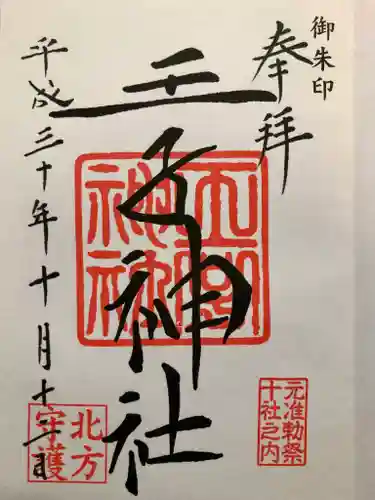 御朱印
奉拝
王子神社
平成三十年十月十二日
元准勅祭
十社之内
北方
守護